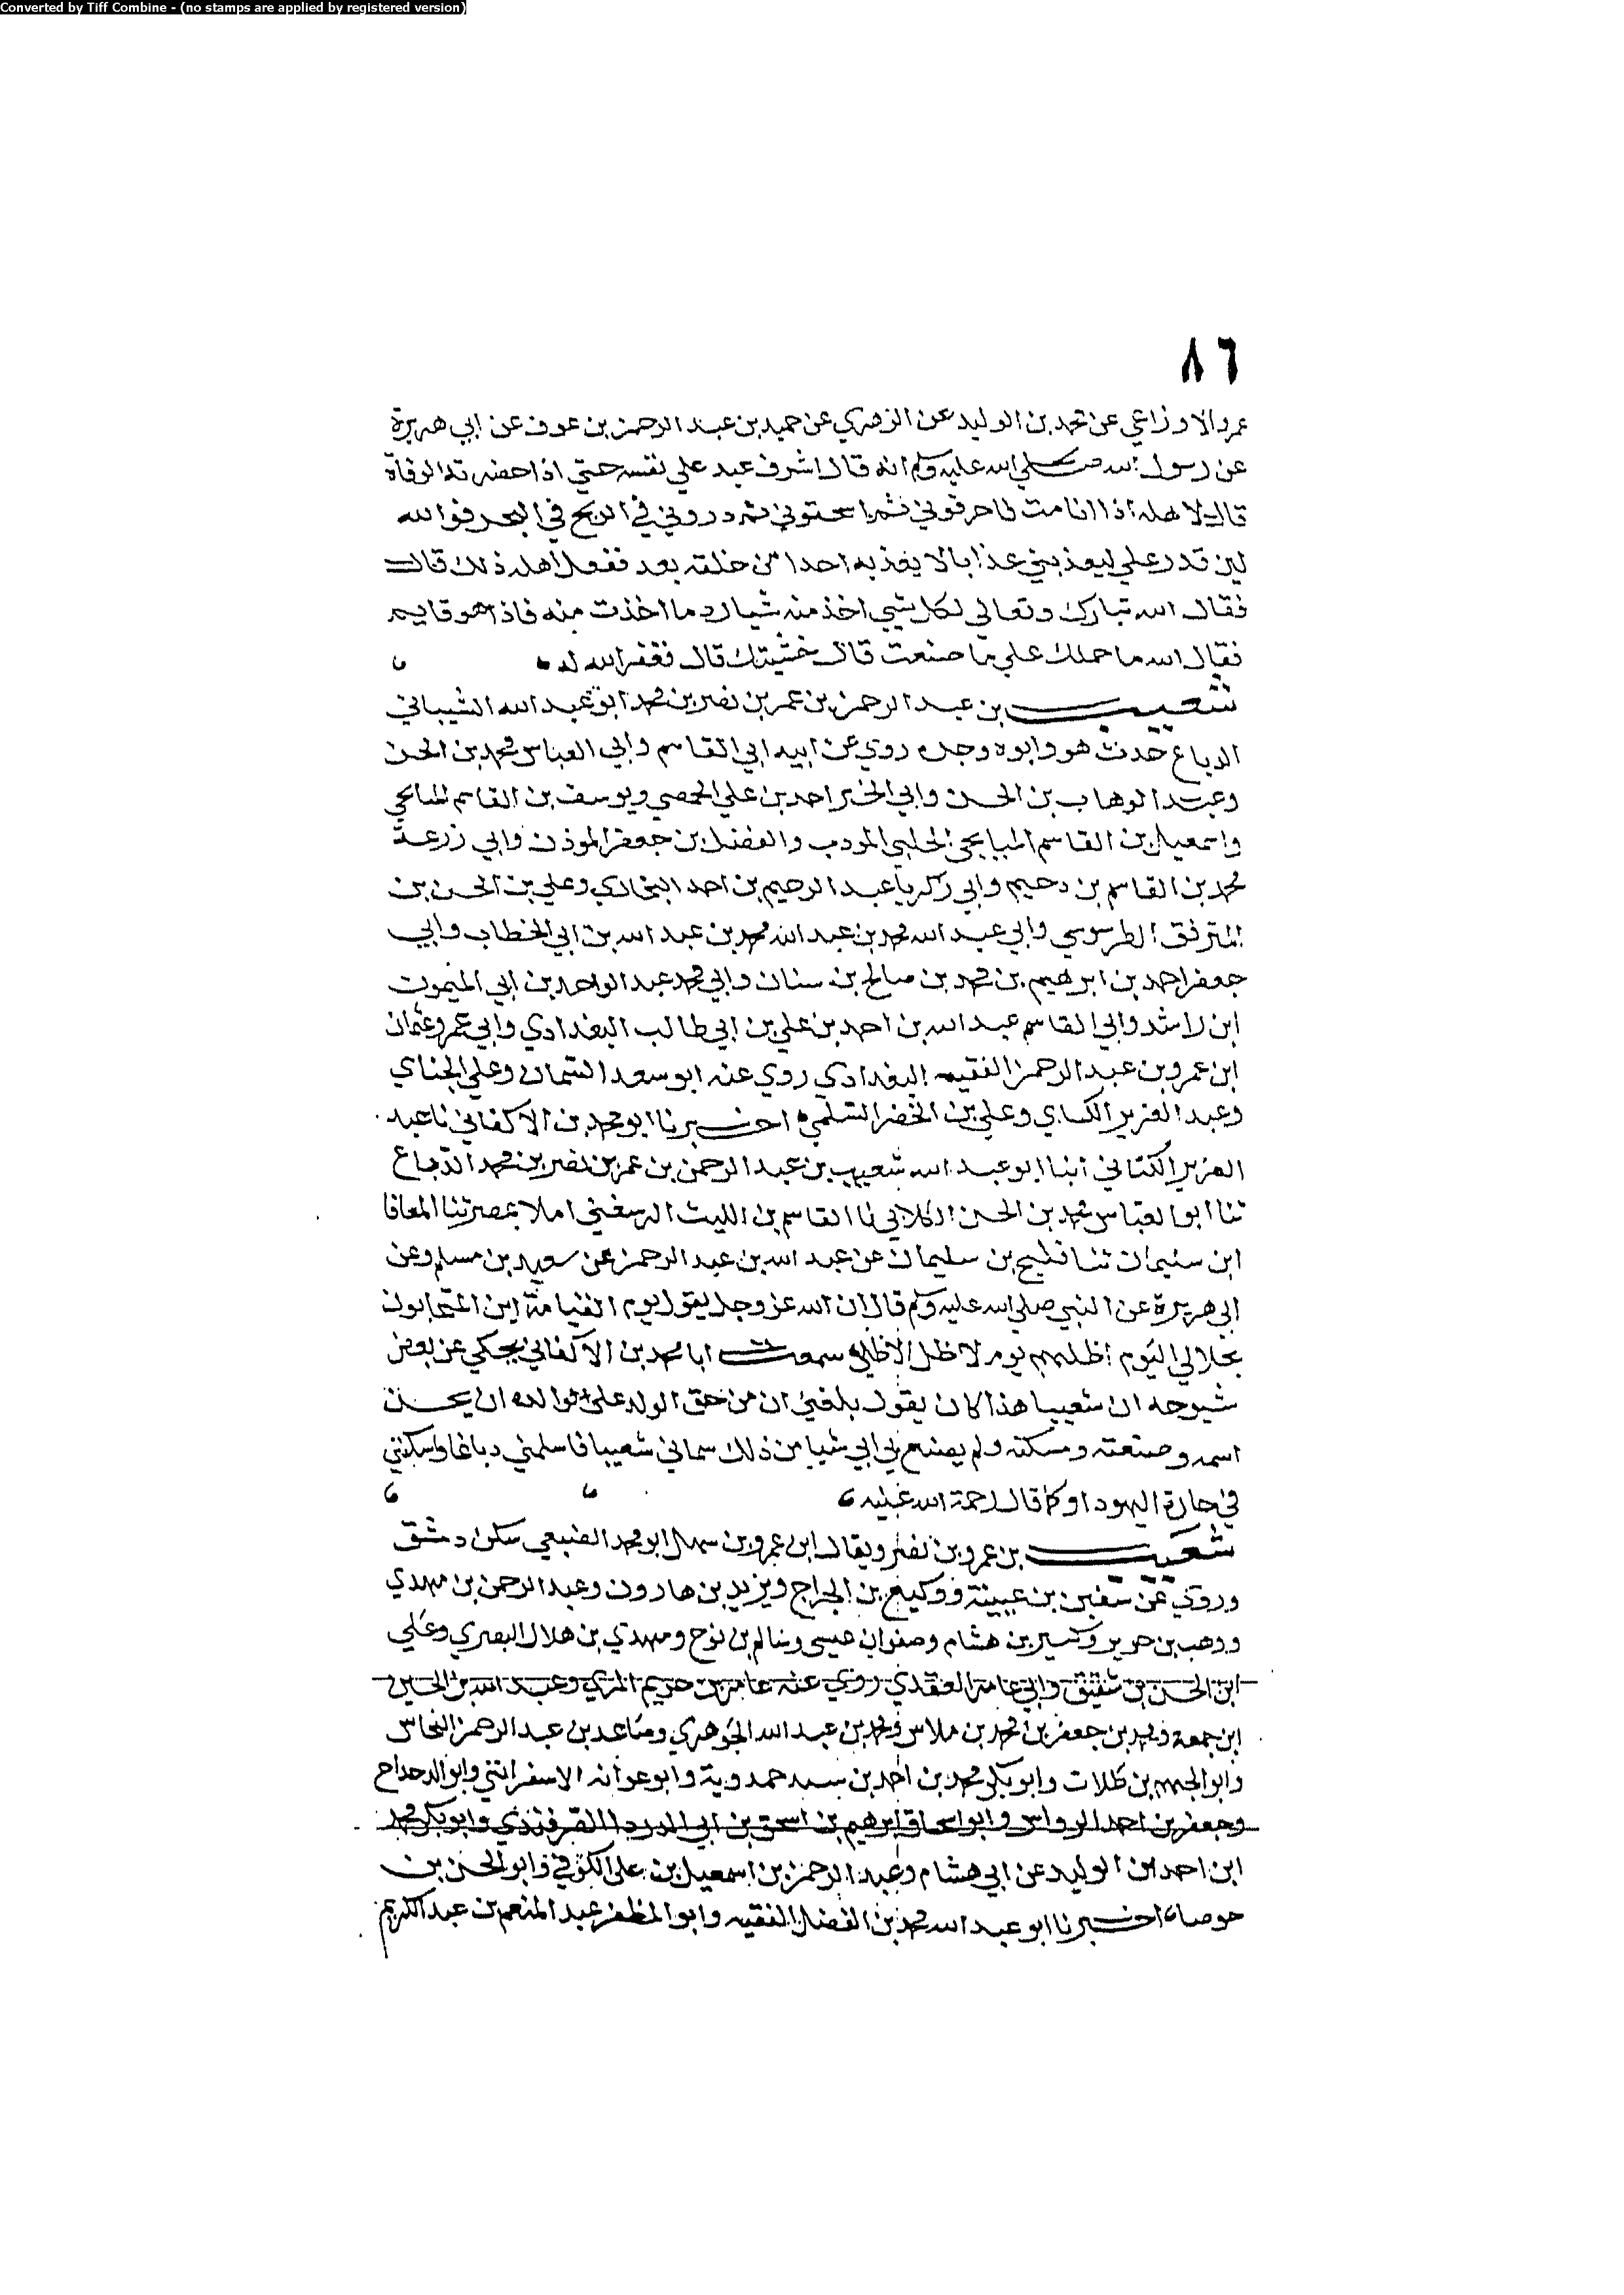 Converted by Tiff Combine - (no stamps are applied by registered version)
٨٦
عمرو الاوزاعي عن محمد بن الوليد عن الزهري عن حميد بن عبد الرحمن بن عوف عن ابي هريرة
عن رسول الله صلي الله عليه وسلم انه قال اشرف عبد علي نفسه حتي اذا حضرته الوفاة
قال لاهله اذا انا مت فاحرقوني ثم اسحقوني ثم دروني في الريح في البحر فوالله
لين قدر علي ليعذبني عذابا لا يعذبه احدا من خلقه بعد ففعل اهله ذلك قال
فقال الله تبارك وتعالي لكل شي اخذ منه شيا رد ما اخذت منه فاذا هو قايم
فقال الله ما حملك علي ما صنعت قال خشيتك قال فغفر الله له
شعيب بن عبد الرحمن بن عمر بن نصر بن محمد ابو عبد الله الشيباني
الدباع حدث هو وابوه وجده روي عن ابيه ابي القاسم وابي العباس محمد بن الحسن
وعبد الوهاب بن الحسن وابي الخير احمد بن علي الحمصي ويوسف بن القاسم الميانجي
واسمعيل بن القاسم الحلبي المودب والفضل بن جعفر الموذن وابي زرعة
محمد بن القاسم بن دحيم وابي زكريا عبد الرحيم بن احمد البخاري وعلي بن الحسن بن
المترفق الطرسوسي وابي عبد الله محمد بن عبد الله محمد بن عبد الله بن ابي الخطاب وابي
جعفر احمد بن ابرهيم بن محمد بن صالح بن سنان وابي محمد عبد الواحد بن ابي الميموت
ابن راشد وابي القاسم عبد الله بن احمد بن علي بن ابي طالب البغدادي وابي عمرو عثمان
ابن عمرو بن عبد الرحمن الفقيه البغدادي روي عنه ابو سعد السمان وعلي الجناي
وعبد العزيز الكتاي وعلي بن الخضر السلمي اخبرنا ابو محمد بن الاكفاني نا عبد
العزيز الكتاني انبا ابو عبد الله شعيب بن عبد الرحمن بن عمر بن نصر بن محمد الدباع
ثنا ابو العباس محمد بن الحسن الكلابي نا القاسم بن الليث الرسغني املا بمصر ثنا المعافا
ابن سليمان ثنا فليح بن سليمان عن عبد الله بن عبد الرحمن عن سعيد بن مسلم وعن
ابي هريرة عن النبي صلي الله عليه وسلم قال ان الله عز وجل يقول يوم القيامة اين المتحابون
بجلالي اليوم اظلهم يوم لا ظل الا ظلي سمعت ابا محمد بن الاكفاني يحكي عن بعض
شيوخه ان شعيبا هذا كان يقول بلغني ان من حق الولد علي والده ان يحسن
اسمه وصنعته ومسكنه ولم يصنع بي ابي شيا من ذلك سماني شعيبا فاسلمني دباغا واسكنني
في حارة اليهود او كما قال رحمة الله عليه
شعيب بن عمرو بن نصر ويقال ابن عمرو بن سهل ابو محمد الضبعي سكن دمشق
وروي عن سفين بن عيينة ووكيع بن الجراح ويزيد بن هارون وعبد الرحمن بن مهدي
ووهب بن جرير وكثير بن هشام وصفوان عيسى وسالم بن نوح ومهدي بن هلال البصري وعلي
ابن الحسن بن شقيق وابي عامر العقدي روي عنه عامر بن خريم المري وعبد الله بن الحسين
ابن جمعة ومحمد بن جعفر بن محمد بن ملاس ومحمد بن عبد الله الجوهري وصاعد بن عبد الرحمن النحاس
وابو الجهم بن طلات وابو بكر محمد بن احمد بن سيد حمدوية وابو عوانه الاسفرائني وابو الدحداح
وجعفر بن احمد الرواس وابو اسحاق ابرهيم بن اسحق بن ابي الدردا وابو بكر محمد
ابن احمد بن الوليد عن ابي هشام وعبد الرحمن بن اسمعيل بن علي الكوفي وابو الحسن بن
حوصا اخبرنا ابو عبد الله محمد بن الفضل الفقيه وابو المظفر عبد المنعم بن عبد الكريم